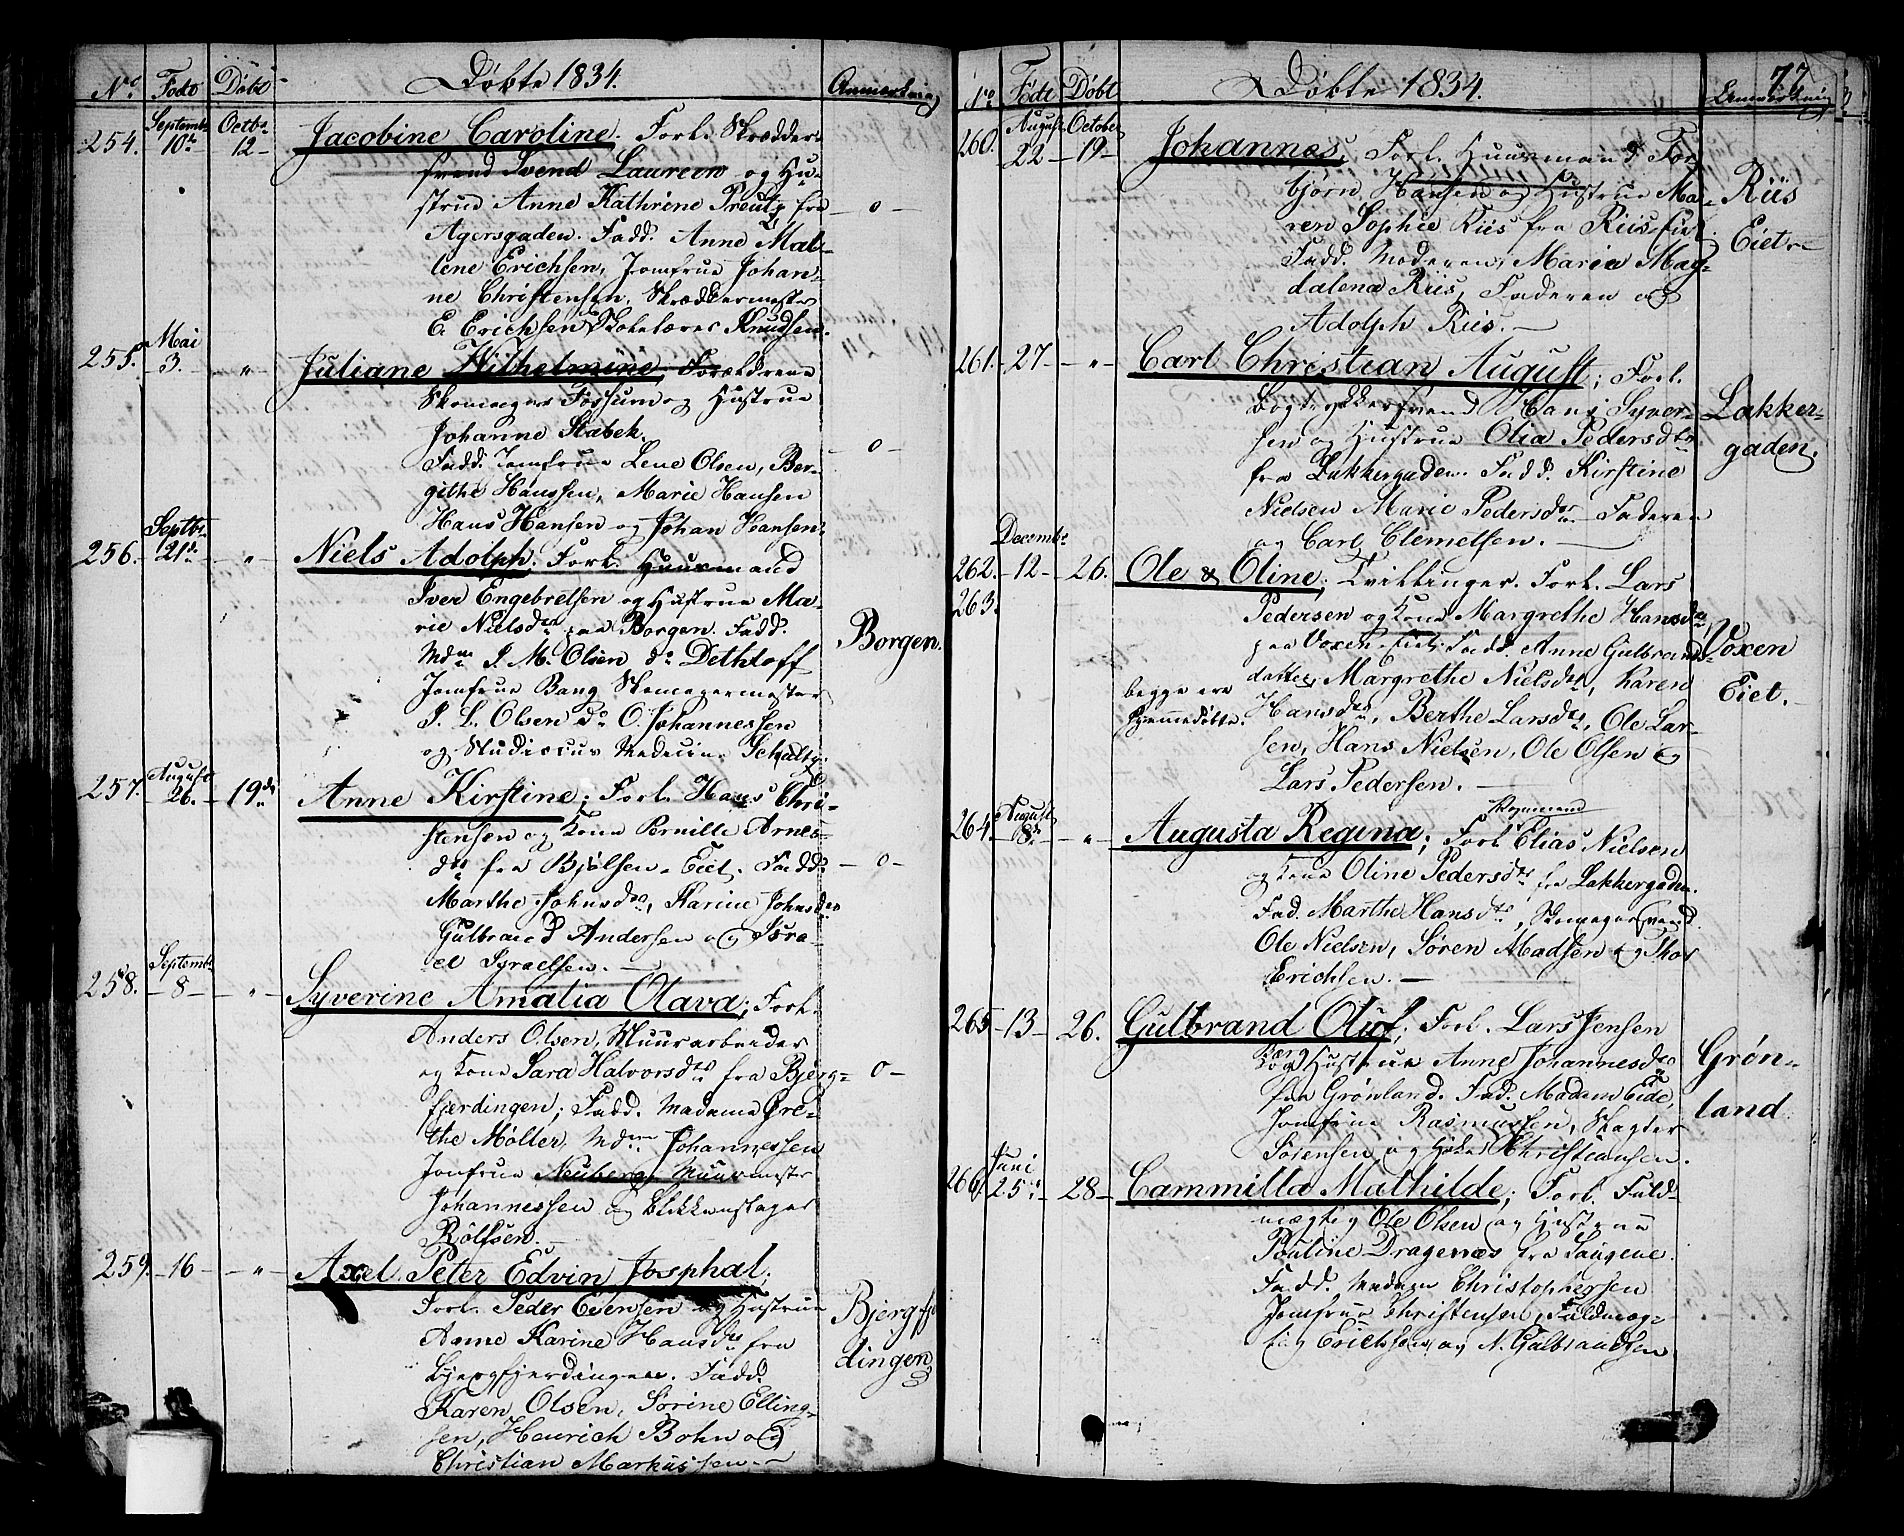 No. Födte Döbte Døbte 1834. Anmerkning
254. Septembr 10de Octbr 12 Jacobine Caroline. Forl. Skrædder-
svend Svend Laureon og Hu-
strue Anne Kathrine Preutz fra
Agersgaden. Fadd. Anne Mal-
lene Erichsen, Jomfrue Johan-
ne Christensen, Skræddermester
E. Erichsen Skolelærer Knudsen.
- o -
255. Mai 3. " Juliane Wilhelmine, Forældrene
Skomager Fossum og Hustrue
Johanne Stabek.
Fadd. Jomfrue Lene Olsen, Ber-
githe Hanssen, Marie Hansen
Hans Hansen og Johan Hansen.
o -
256. Septbr 21de " Niels Adolph. Forl. Huusmand
Iver Engebretsen og Hustrue Ma-
rie Nielsdtr paa Borgen. Fadd.
Mdm J. M. Olsen, do Dethloff
Jomfrue Bang Skomagermester
J. L. Olsen do O. Johannessen
og Studiosus Medicin.
Borgen.
257. August 26. 19de Anne Kirstine; Forl. Hans Chri-
stensen og Kone Pernille Arnes-
dtr fra Bjølsen-Eiet. Fadd.
Marthe Johnsdtr, Karine Johnsdtr
Gulbrand Andersen og Isra-
el Israelsen. -
- o -
258. Septembr 8 " Syverine Amalia Olava; Forl.
Anders Olsen, Muurarbeider
og Kone Sara Halvorsdtr fra Bjerg-
fjerdingen; Fadd. Madame Gre-
the Möller, Mdm Johannessen
Jomfrue Neuberg, Muurmester
Johannessen og Blikkenslager
Rolfsen. -
- o -
259. 16 " Axel Peter Edvin Josphal;
Forl. Peder Evensen og Hustrue
Anne Karine Hansdtr fra
Bjergfjerdingen. Fadd.
Karen Olsen, Sørine Elling-
sen, Henrich Bohn og
Christian Markussen. -
Bjergfjer
dingen
No Födte Döbt Døbte 1834. 77 Anmerkning
260. August 22 October 19 Johannes, Forl. Huusmand Tor-
björn Hansen og Hustrue Ma-
ren Sophie Riis fra Riis Eiet.
Fadd. Moderen, Marie Mag-
dalena Riis, Faderen og
Adolph Riis. -
Riis
Eiet -
261. 27 " Carl Christian August; Forl.
Bogtrykkersvend Hans Syver-
sen og Hustrue Olia Pedersdtr
fra Lakkergaden. Fadd. Kirstine
Nielsen Marie Pedersdtr Faderen
og Carl Clemetsen. -
Lakker-
gaden.
262. Decembr 12 26. Ole & Oline, Tvillinger. Forl. Lars
263. Pedersen og Kone Margrethe Hansdtr
paa Voxen-Eiet. Fadd. Anne Gulbrands-
datter, Margrethe Nielsdtr, Karen
Hansdtr, Berthe Larsdtr, Ole Lar-
sen, Hans Nielsen, Ole Olsen &
Lars Pedersen. -
begge ere
hjemmedøbte.
Voxen
Eiet.
264. August 8de " Augusta Regina; Forl. Elias Nielsen
og Kone Oline Pedersdtr fra Lakkergaden.
Fad. Marthe Hansdtr, Skomagersvend
Ole Nielsen, Søren Madsen og Thor
Erichsen. -
265 13 26. Gulbrand Oluf; Forl. Lars Jensen
og Hustrue Anne Johannesdtr
fra Grønland. Fad. Madam Eide,
Jomfrue Rasmussen, Slagter
Sörensen og Christiansen.
Grøn-
land
266. Juni 25de 28 Cammilla Mathilde; Forl. Fuld-
mægtig Ole Olsen og Hustrue
Pouline Dragenæs fra Saugene.
Fadd. Madam Christophersen
Jomfrue Christensen, Fuldmæg-
tig Erichsen og N. Gulbrandsen